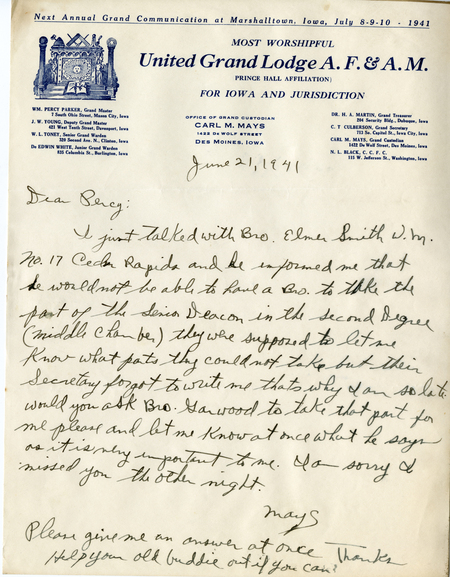 Next Annual Grand Communication at Marshalltown, Iowa, July 8-9-10 - 1941
MOST WORSHIPFUL
United Grand Lodge A. F. & A. M.
PRINCE HALL AFFILIATION)
FOR IOWA AND JURISDICTION
WM. PERCY PARKER, Grand Master
7 South Ohio Street, Mason City, Iowa
J. W. YOUNG, Deputy Grand Master
421 West Tenth Street, Davenport, Iowa
W. L. TONEY, Senior Grand Warden
320 Second Ave. N., Clinton, Iowa
De EDWIN WHITE, Junior Grand Warden
835 Columbia St., Burlington, Iowa
OFFICE OF GRAND CUSTODIAN
CARL M. MAYS
1422 DE WOLF STREET
DES MOINES, IOWA
DR. H. A. MARTIN, Grand Treasurer
204 Security Bldg., Dubuque, Iowa
C. T CULBERSON, Grand Secretary
713 So. Capitol St., Iowa City, Iowa
CARL M. MAYS, Grand Custodian
1422 De Wolf Street, Des Moines, Iowa
N. L. BLACK, C. C. F. C.
115 W. Jefferson St., Washington, Iowa
June 21, 1941
Dear Percy:
I just talked with Bro. Elmer Smith W.M.
No. 17 Cedar Rapids and he informed me that
he would not be able to have a Bro. to take the
part of the Senior Deacon in the second Degree
(middle Chamber) they were supposed to let me
Know what pats they could not take but their
Secretary forgot to write me thats why I am so late.
would you ask Bro. Garwood to take that part for
me please and let me Know at once what he says
as it is very important to me. I am sorry I
missed you the other night.
Mays
Please give me an answer at once Thanks
Help your old buddie out if you can?